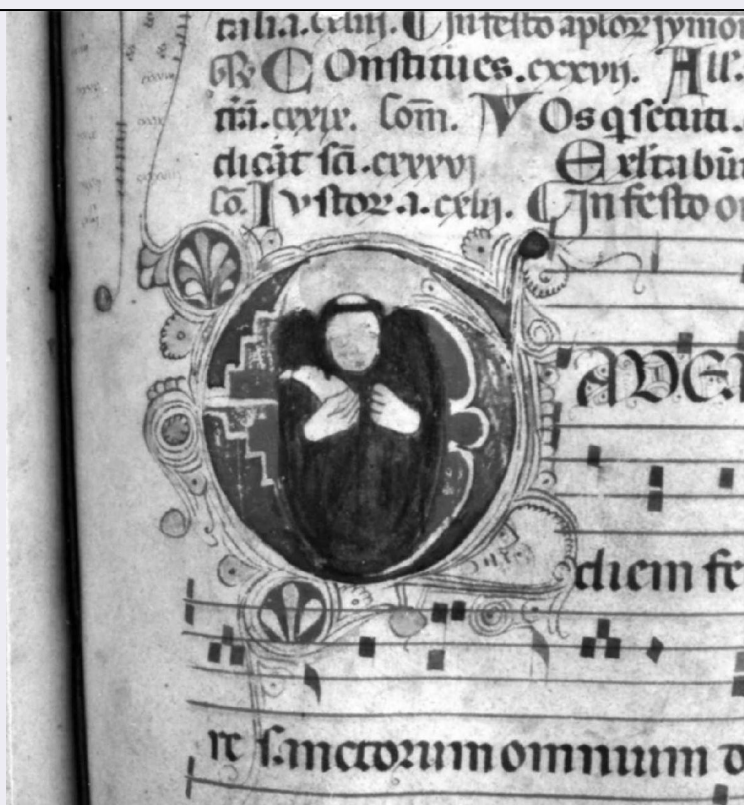 talia.a.cxliii. In festo aplor symon
℟ Constitues.cxxvii. All.
cxxix. Com̄. Vos q secuti.
dicāt sci.cxxxvj Exltabūt
cō. Iustor.a.cxlij. In festo o
AUDEA
diem fe
re sanctorum omnium d